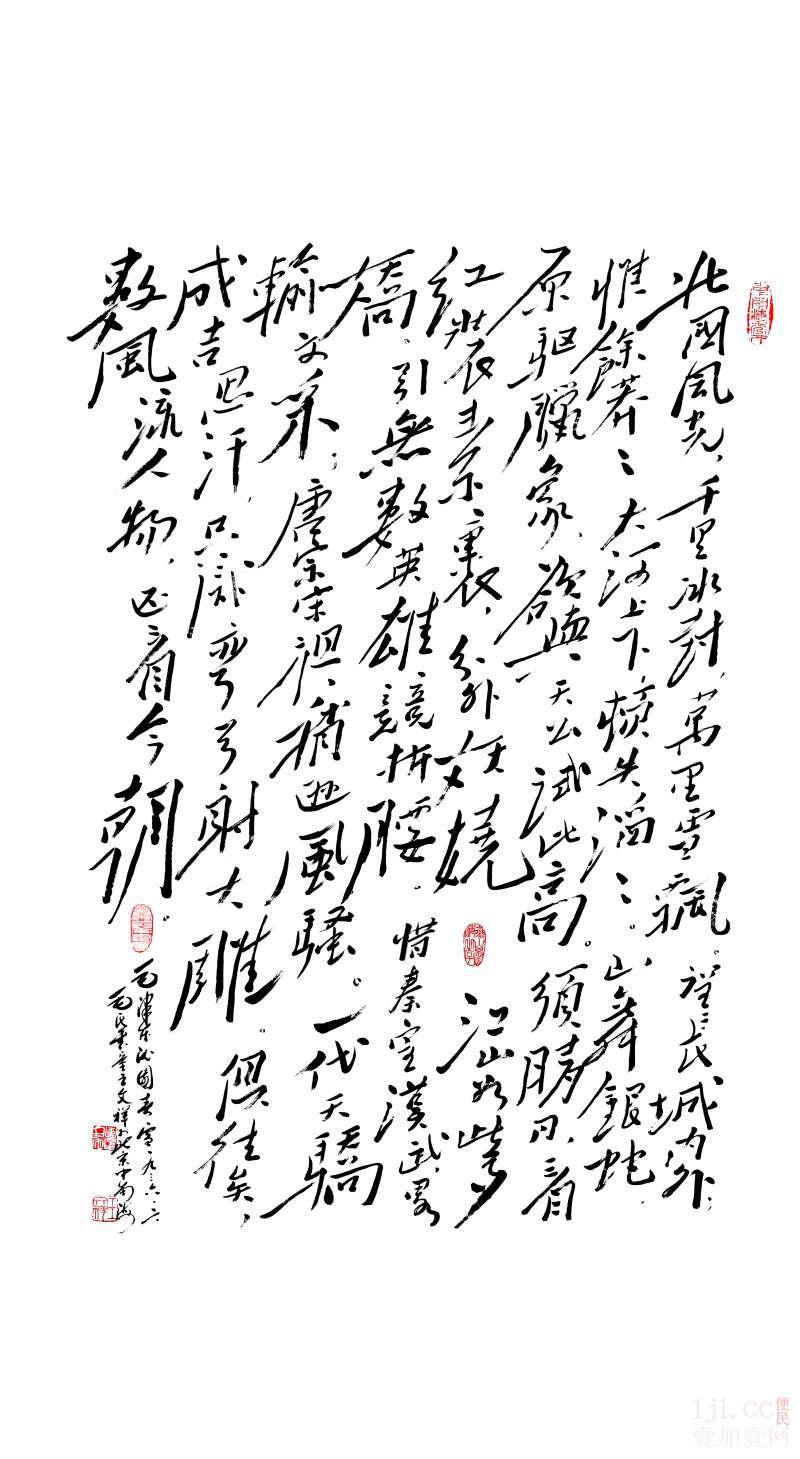 北國風光，千里冰封，萬里雪飄。望長城内外，
惟餘莽々；大河上下，頓失滔々。山舞銀蛇，
原驅臘象，欲與天公試比高。須晴日，看
红裝素裹，分外妖嬈。江山如此多
嬌，引無數英雄競折腰。惜秦皇漢武，畧
輸文采；唐宗宋祖，稍遜風騷。一代天驕
成吉思汗，只識彎弓射大雕。俱往矣，
數風流人物，还看今朝。
毛澤東沁園春雪一九三六
王文祥於北京中南海
1j1.cc便民
壹加壹网